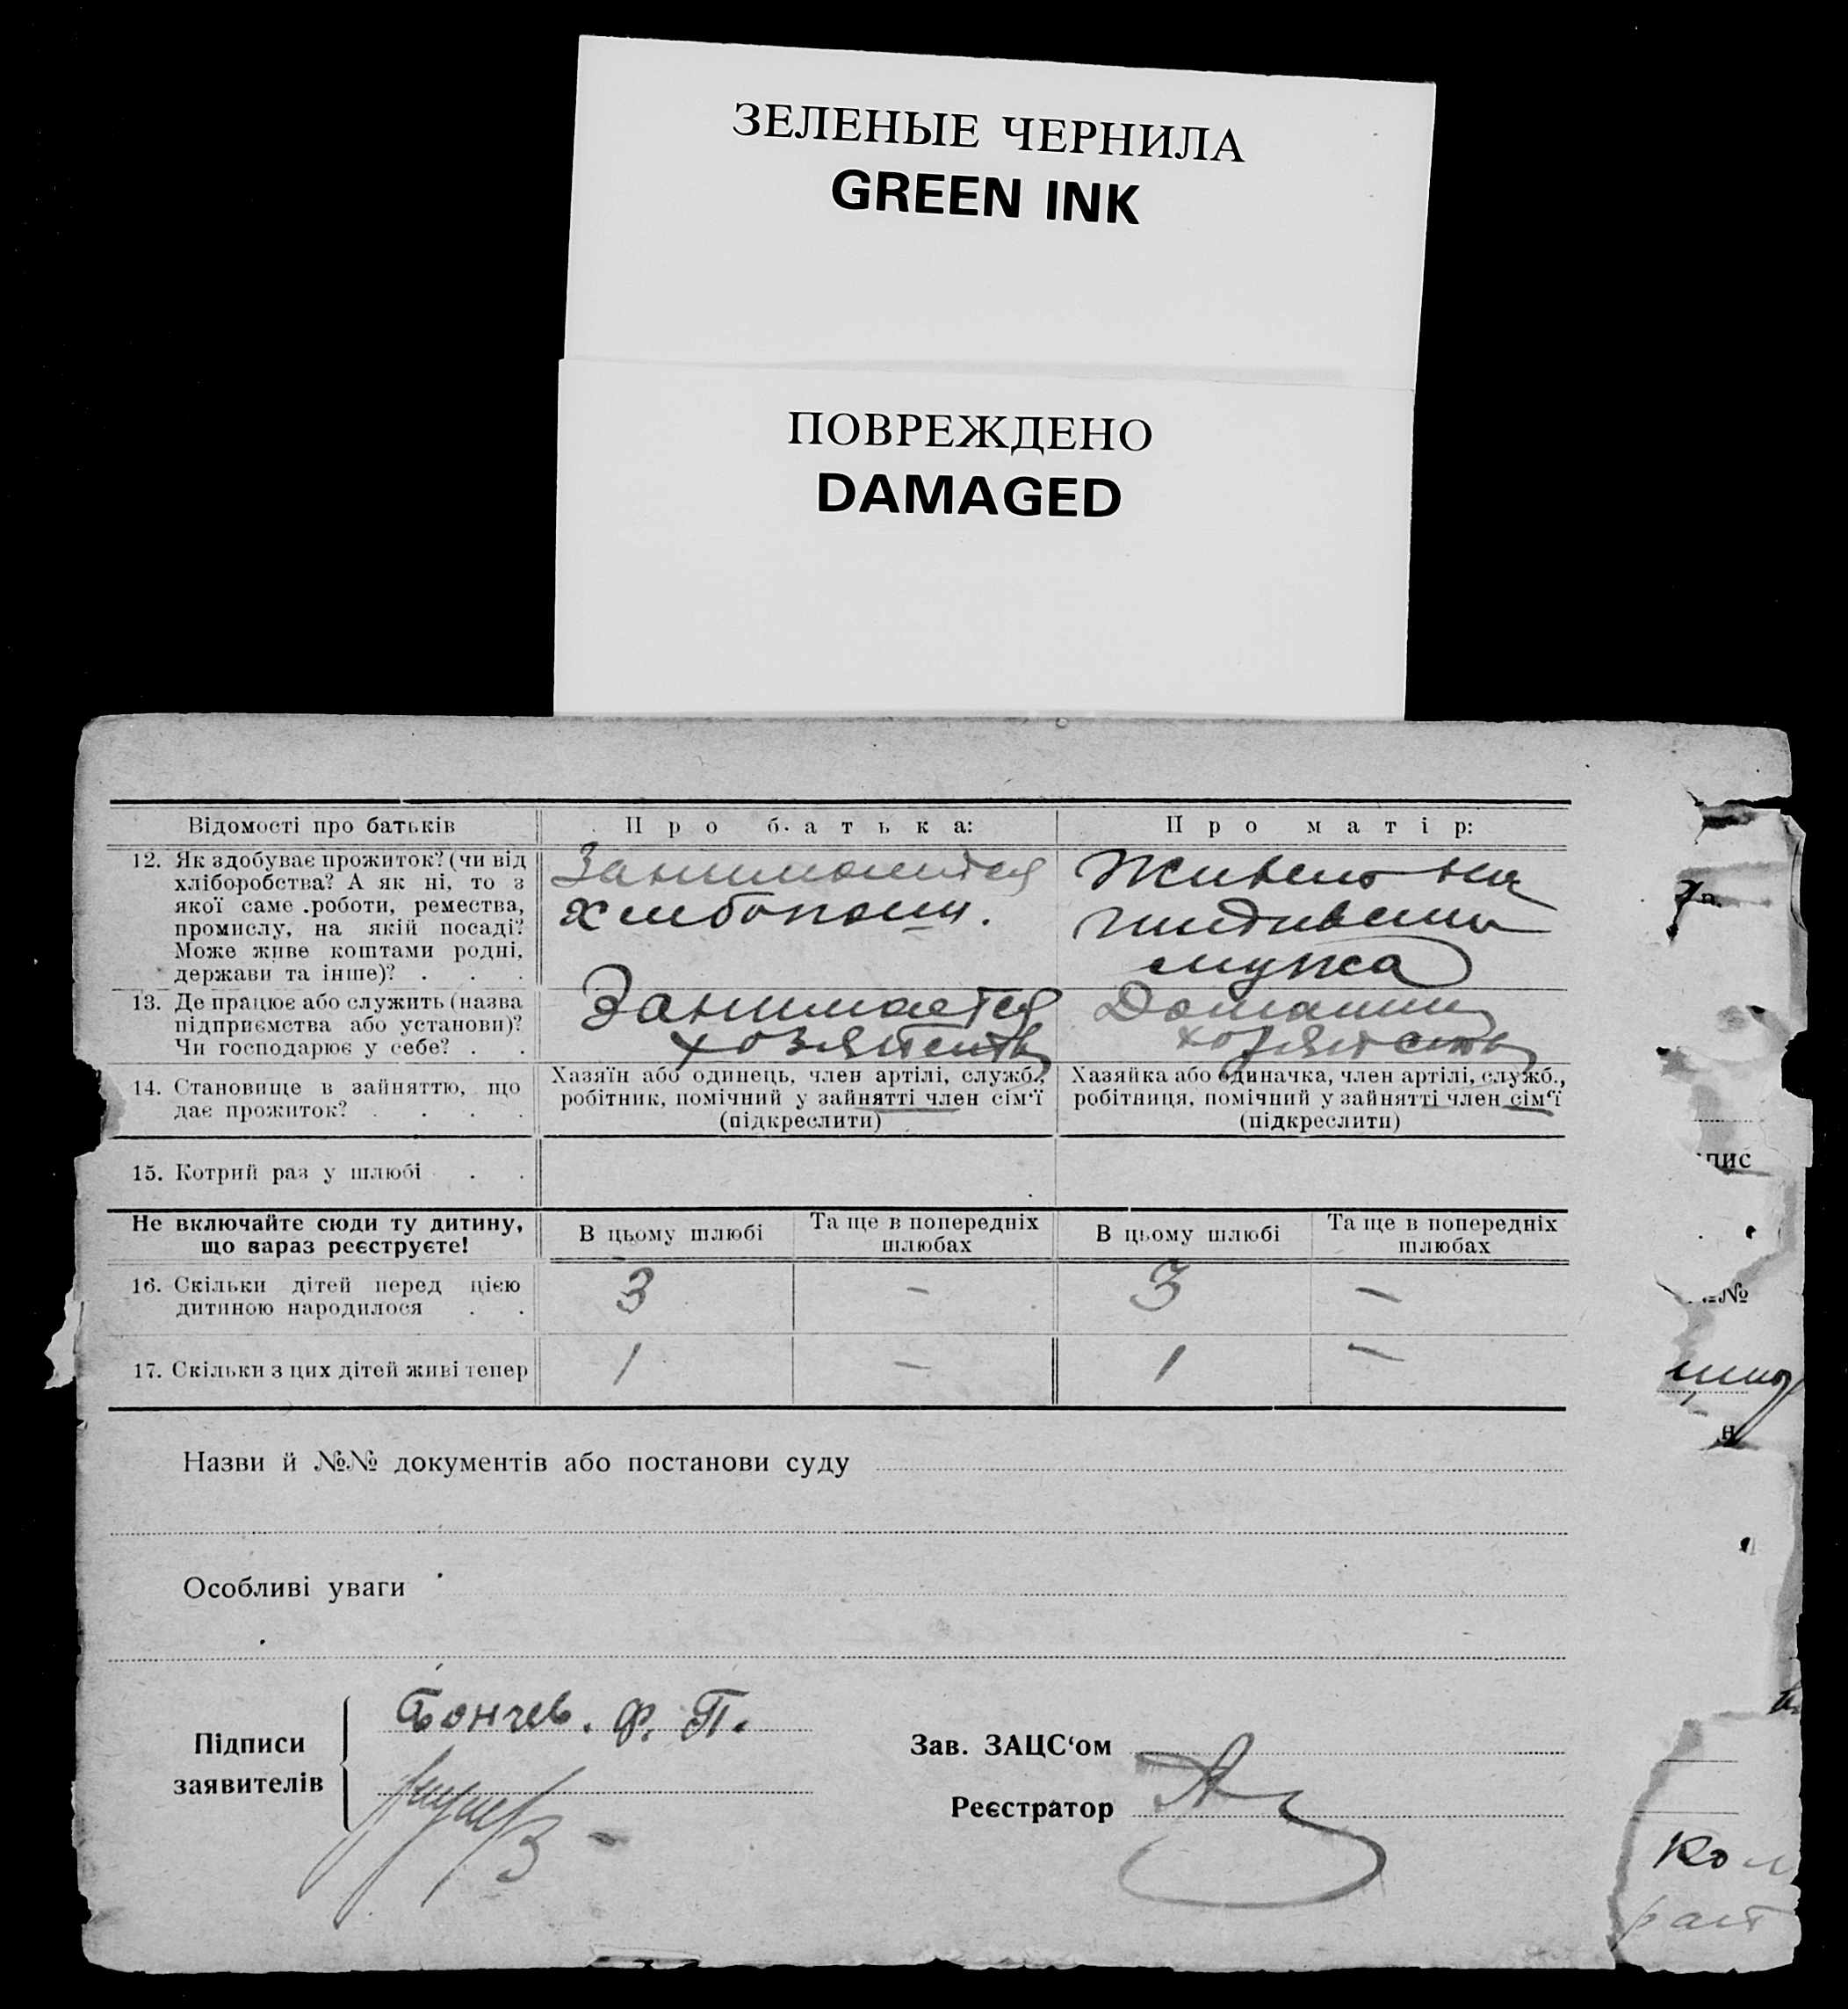 ЗЕЛЕНЫЕ ЧЕРНИЛА
GREEN INK
ПОВРЕЖДЕНО
DAMAGED
Відомості про батьків
Про батька:
Про матір:
12. Як здобуває прожиток? (чи від
хліборобства? А як ні, то з
якої саме роботи, ремества,
промислу, на якій посаді?
Може живе коштами родні,
держави та інше)? . . .
Занимается
Живет на
мужа
13. Де працює або служить (назва
підприємства або установи)?
Чи господарює у себе? . .
Занимается
14. Становище в зайняттю, що
дає прожиток? . . . .
Хазяїн або одинець, член артілі, служб.,
робітник, помічний у зайнятті член сім'ї
(підкреслити)
Хазяйка або одиначка, член артілі, служб.,
робітниця, помічний у зайнятті член сім'ї
(підкреслити)
15. Котрий раз у шлюбі . .
Не включайте сюди ту дитину,
що вараз реєструєте!
В цьому шлюбі
Та ще в попередніх
шлюбах
В цьому шлюбі
Та ще в попередніх
шлюбах
16. Скільки дітей перед цією
дитиною народилося . .
3 — 3 —
17. Скільки з цих дітей живі тепер
1 — 1 —
Назви й №№ документів або постанови суду
Особливі уваги
Підписи
заявителів
Бончев. Ф. П.
Зав. ЗАЦС'ом
Реєстратор
пис
№